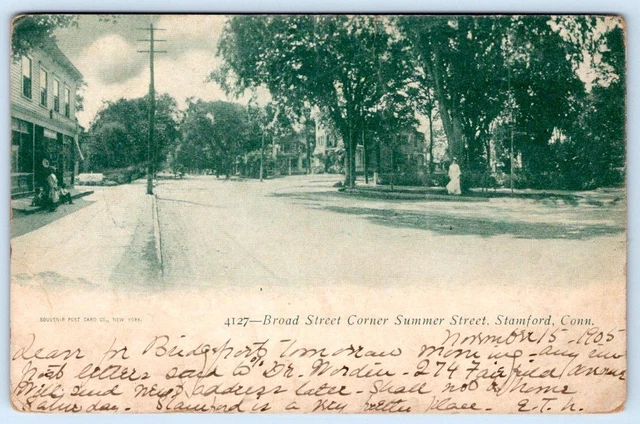 SOUVENIR POST CARD CO., NEW YORK.
4127—Broad Street Corner Summer Street. Stamford, Conn.
November 15 - 1905
Dear In Bridgeport Tomorrow morning - Any
letters send C/o Dr. - 274 Fairfield Avenue
Will send next address later - Shall not be home
Saturday. Stamford is a very pretty place. E. T. H.